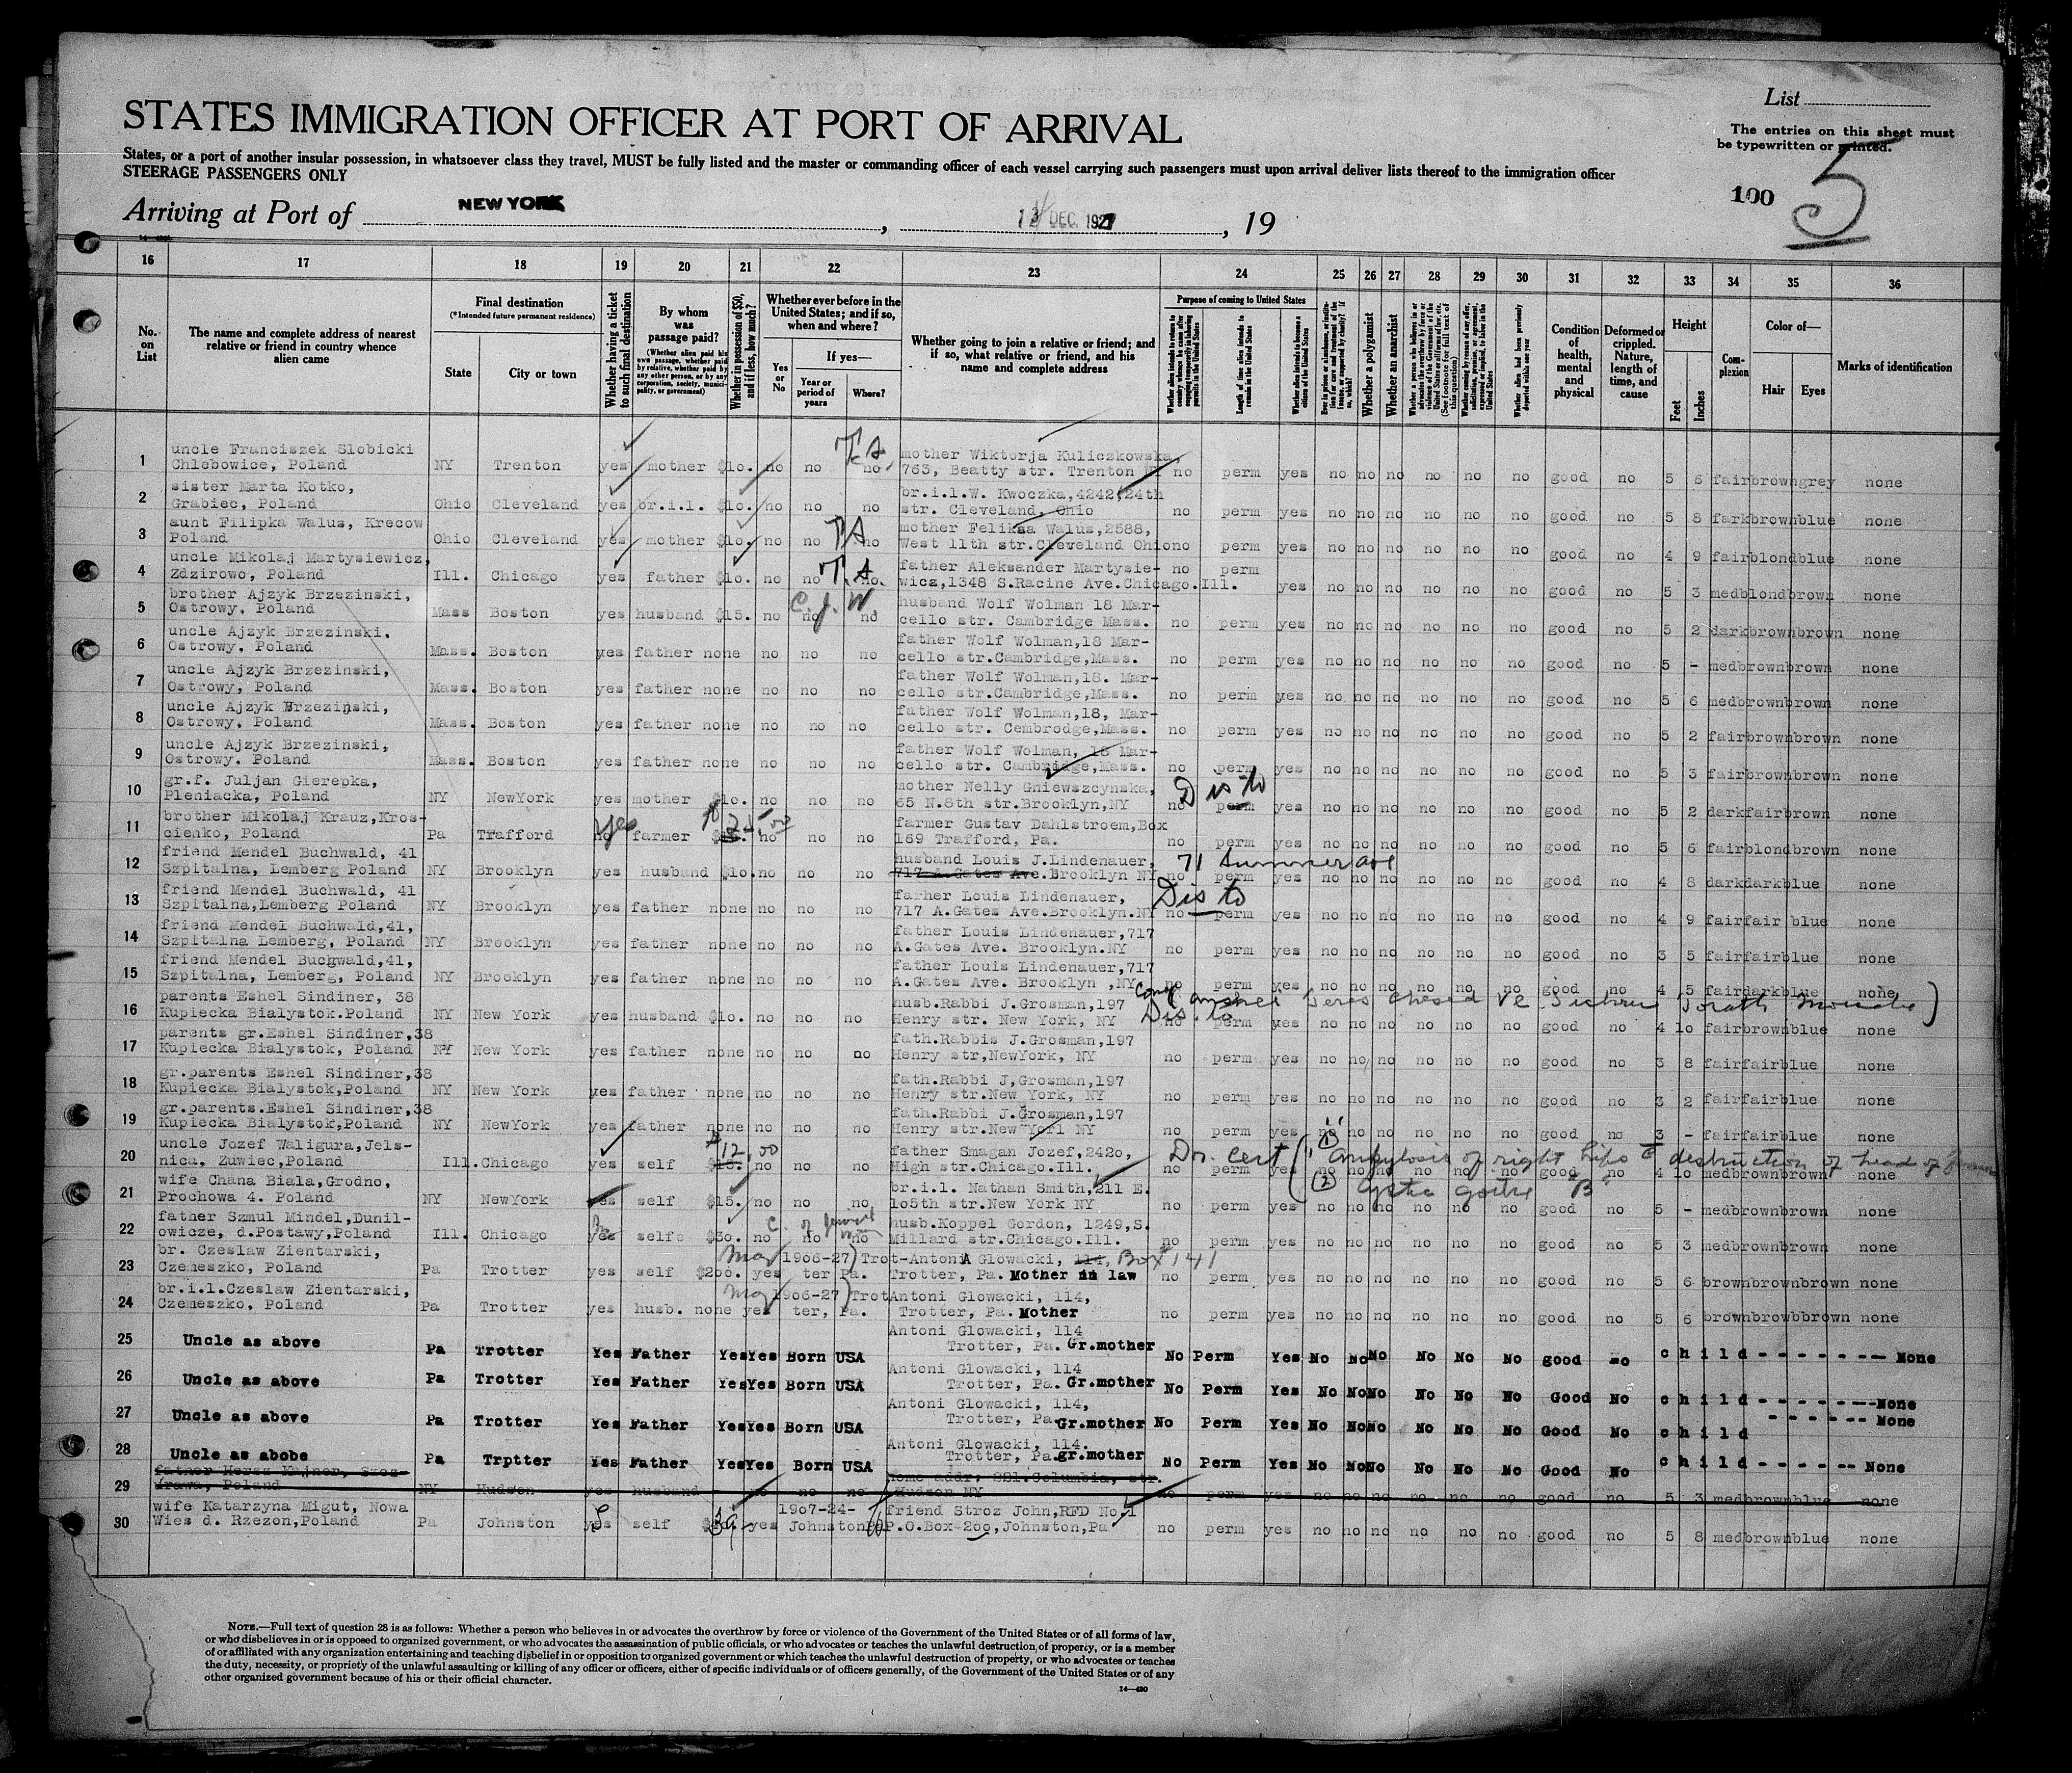 List
STATES IMMIGRATION OFFICER AT PORT OF ARRIVAL
The entries on this sheet must
be typewritten or printed.
States, or a port of another insular possession, in whatsoever class they travel, MUST be fully listed and the master or commanding officer of each vessel carrying such passengers must upon arrival deliver lists thereof to the immigration officer
STEERAGE PASSENGERS ONLY
100 5
Arriving at Port of NEW YORK , DEC. 1927 , 19
16 17 18 19 20 21 22 23 24 25 26 27 28 29 30 31 32 33 34 35 36
No. on List
The name and complete address of nearest relative or friend in country whence alien came
Final destination
(*Intended future permanent residence)
State
City or town
Whether having a ticket to such final destination
By whom was passage paid?
(Whether alien paid his own passage, whether paid by relative, whether paid by any other person, or by any corporation, society, municipality, or government)
Whether in possession of $50, and if less, how much?
Whether ever before in the United States; and if so, when and where?
Yes or No
If yes—
Year or period of years
Where?
Whether going to join a relative or friend; and if so, what relative or friend, and his name and complete address
Purpose of coming to United States
Length of time alien intends to remain in the United States
Whether alien intends to become a citizen of the United States
Whether a polygamist
Whether an anarchist
Condition of health, mental and physical
Deformed or crippled. Nature, length of time, and cause
Height
Feet
Inches
Complexion
Color of—
Hair
Eyes
Marks of identification
1 uncle Franciszek Slobicki
Chlebowice, Poland NY Trenton yes mother $1o. no no no mother Wiktorja Kuliczkowska,
763, Beatty str. Trenton no perm yes no no no no no no good no 5 6 fair brown grey none
2 sister Marta Kotko,
Grabiec, Poland Ohio Cleveland yes br.i.l. $1o. no no no br.i.l.W. Kwoczka,4242,24th
str. Cleveland, Ohio no perm yes no no no no no no good no 5 8 fark brown blue none
3 aunt Filipka Walus, Krecow
Poland Ohio Cleveland yes mother $1o. no no no mother Feliksa Walus,2588,
West 11th str.Cleveland Ohio no perm yes no no no no no no good no 4 9 fair blond blue none
4 uncle Mikolaj Martysiewicz,
Zdzirowo, Poland Ill. Chicago yes father $1o. no no no. father Aleksander Martysie-
wicz,1348 S.Racine Ave.Chicago.Ill. no perm yes no no no no no no good no 5 3 med blond brown none
5 brother Ajzyk Brzezinski,
Ostrowy, Poland Mass Boston yes husband $15. no no no C.J.W husband Wolf Wolman 18 Mar-
cello str. Cambridge Mass. no perm yes no no no no no no good no 5 2 dark brown brown none
6 uncle Ajzyk Brzezinski,
Ostrowy, Poland Mass. Boston yes father none no no no father Wolf Wolman,18 Mar-
cello str.Cambridge,Mass. no perm yes no no no no no no good no 5 - med brown brown none
7 uncle Ajzyk Brzezinski,
Ostrowy, Poland Mass. Boston yes father none no no no father Wolf Wolman,18. Mar-
cello str.Cambridge,Mass. no perm yes no no no no no no good no 5 6 med brown brown none
8 uncle Ajzyk Brzezinski,
Ostrowy, Poland Mass. Boston yes father none no no no father Wolf Wolman,18, Mar-
cello str. Cembrodge,Mass. no perm yes no no no no no no good no 5 2 fair brown brown none
9 uncle Ajzyk Brzezinski,
Ostrowy. Poland Mass. Boston yes father none no no no father Wolf Wolman, 18 Mar-
cello str. Cambridge,Mass. no perm yes no no no no no no good no 5 3 fair brown brown none
10 gr.f. Juljan Gierepka,
Pleniacka, Poland NY NewYork yes mother $1o. no no no mother Nelly Gniewszcynska,
65 N.8th str.Brooklyn,NY Dis to no perm yes no no no no no no good no 5 2 dark fair brown none
11 brother Mikolaj Krauz,Kros-
cienko, Poland Pa Trafford no yes farmer no no no farmer Gustav Dahlstroem,Box
169 Trafford, Pa. no perm yes no no no no no no good no 5 6 fair blond brown none
12 friend Mendel Buchwald, 41
Szpitalna, Lemberg Poland NY Brooklyn yes husband $1o. no no no husband Louis J.Lindenauer,
717 A.Gates Ave.Brooklyn NY 71 Summer ave no perm yes no no no no no no good no 4 8 dark dark blue none
13 friend Mendel Buchwald, 41
Szpitalna,Lemberg Poland NY Brooklyn yes father none no no no farher Louis Lindenauer,
717 A.Gates Ave.Brooklyn.NY Dis to no perm yes no no no no no no good no 4 9 fair fair blue none
14 friend Mendel Buchwald,41,
Szpitalna Lemberg, Poland NY Brooklyn yes father none no no no father Louis Lindenauer,717
A.Gates Ave. Brooklyn.NY no perm yes no no no no no no good no 3 5 fair fair blue none
15 friend Mendel Buchwald,41,
Szpitalna, Lemberg, Poland NY Brooklyn yes father none no no no father Louis Lindenauer,717
A.Gates Ave. Brooklyn ,NY no perm yes no no no no no no good no 4 5 fair dark blue none
16 parents Eshel Sindiner, 38
Kupiecka Bialystok.Poland NY New York yes husband $1o. no no no husb.Rabbi J.Grosman,197
Henry str. New York, NY Dis. to no perm yes no no no no no no good no 4 1o fair brown blue none
17 parents gr.Eshel Sindiner,38
Kupiecka Bialystok, Poland NY New York yes father none no no no fath.Rabbis J.Grosman,197
Henry str,NewYork, NY no perm yes no no no no no no good no 3 8 fair fair blue none
18 gr.parents Eshel Sindiner,38
Kupiecka Bialystok,Poland NY New York yes father none no no no fath.Rabbi J,Grosman,197
Henry str.New York, NY no perm yes no no no no no no good no 3 2 fair fair blue none
19 gr.parents.Eshel Sindiner,38
Kupiecka Bialystok,Poland NY NewYork yes father none no no no fath.Rabbi J.Grosman,197
Henry str.New Yorl NY no perm yes no no no no no no good no 3 - fair fair blue none
20 uncle Jozef Waligura,Jels-
nica, Zuwiec,Poland Ill. Chicago yes self $12.00 no no no father Smagan Jozef,242o,
High str.Chicago.Ill. no perm yes no no no no no no good no 4 1o med brown brown none
Dr. Cert (1) ankylosis of right hips c destruction of head of
(2) cystic goitre B
21 wife Chana Biala,Grodno,
Prochowa 4. Poland NY NewYork yes self $15. no no no br.i.l. Nathan Smith,211 E.
1o5th str.New York NY no perm yes no no no no no no good no 5 - med brown brown none
22 father Szmul Mindel,Dunil-
owicze, d.Postawy,Poland Ill. Chicago yes self $3o. no no no husb.Koppel Gordon, 1249,S.
Millard str.Chicago.Ill. no perm yes no no no no no no good no 5 3 med brown brown none
23 br. Czeslaw Zientarski,
Czemeszko, Poland Pa Trotter yes self $2oo. yes May 19o6-27 Trotter Pa. Antoni Glowacki, 114, Box 141
Trotter, Pa. Mother in law no perm yes no no no no no no good no 5 6 brown brown brown none
24 br.i.l.Czeslaw Zientarski,
Czemeszko, Poland Pa Trotter yes husb. none yes May 19o6-27 Trotter, Pa. Antoni Glowacki, 114,
Trotter, Pa. Mother no perm yes no no no no no no good no 5 6 brown browb brown none
25 Uncle as above Pa Trotter Yes Father Yes Yes Born USA Antoni Glowacki, 114
Trotter, Pa. Gr.mother No Perm Yes No No No No No No good no child - - - - - - - None
26 Uncle as above Pa Trotter Yes Father Yes Yes Born USA Antoni Glowacki, 114
Trotter, Pa. Gr.mother No Perm Yes No No No No No No Good No child - - - - - - - None
27 Uncle as above Pa Trotter Yes Father Yes Yes Born USA Antoni Glowacki, 114,
Trotter, Pa. Gr.mother No Perm Yes No No No No No No Good No child - - - - - - None
28 Uncle as abobe Pa Trptter Yes Father Yes Yes Born USA Antoni Glowacki, 114.
Trotter, Pa. gr.mother No Perm Yes No No No No No No Good No child - - - - - - None
29 father Hersz Kajner,
Poland NY Hudson yes husband no no no home addr; Columbia, str.
Hudson NY no perm yes no no no no no no good no 5 3 med brown blue none
30 wife Katarzyna Migut, Nowa
Wies d. Rzezon,Poland Pa Johnston yes self yes 19o7-24- Johnston friend Stroz John,RFD No.1
P.O.Box-2oo,Johnston,Pa no perm yes no no no no no no good no 5 8 med brown blue none
NOTE.—Full text of question 28 is as follows: Whether a person who believes in or advocates the overthrow by force or violence of the Government of the United States or of all forms of law,
or who disbelieves in or is opposed to organized government, or who advocates the assassination of public officials, or who advocates or teaches the unlawful destruction of property, or is a member
of or affiliated with any organization entertaining and teaching disbelief in or opposition to organized government or which teaches the unlawful destruction of property, or who advocates or teaches
the duty, necessity, or propriety of the unlawful assaulting or killing of any officer or officers, either of specific individuals or of officers generally, of the Government of the United States or of any
other organized government because of his or their official character.
14—430